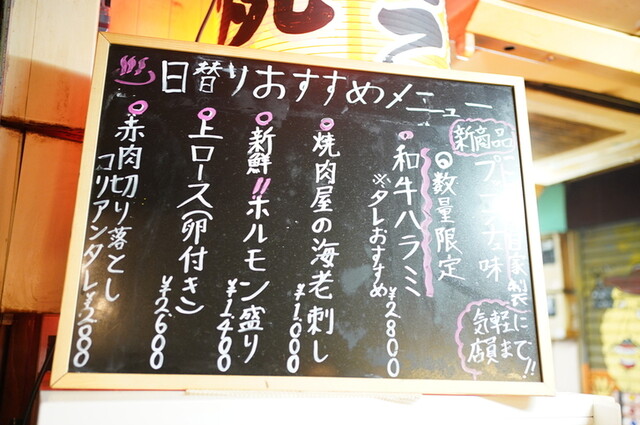 日替りおすすめメニュー
新商品
自家製
気軽に
店頭まで!!
数量限定
和牛ハラミ
※タレおすすめ
¥2800
焼肉屋の海老刺し
¥1000
新鮮!!ホルモン盛り
¥1460
上ロース(卵付き)
¥2600
赤肉切り落とし
コリアンタレ ¥2800